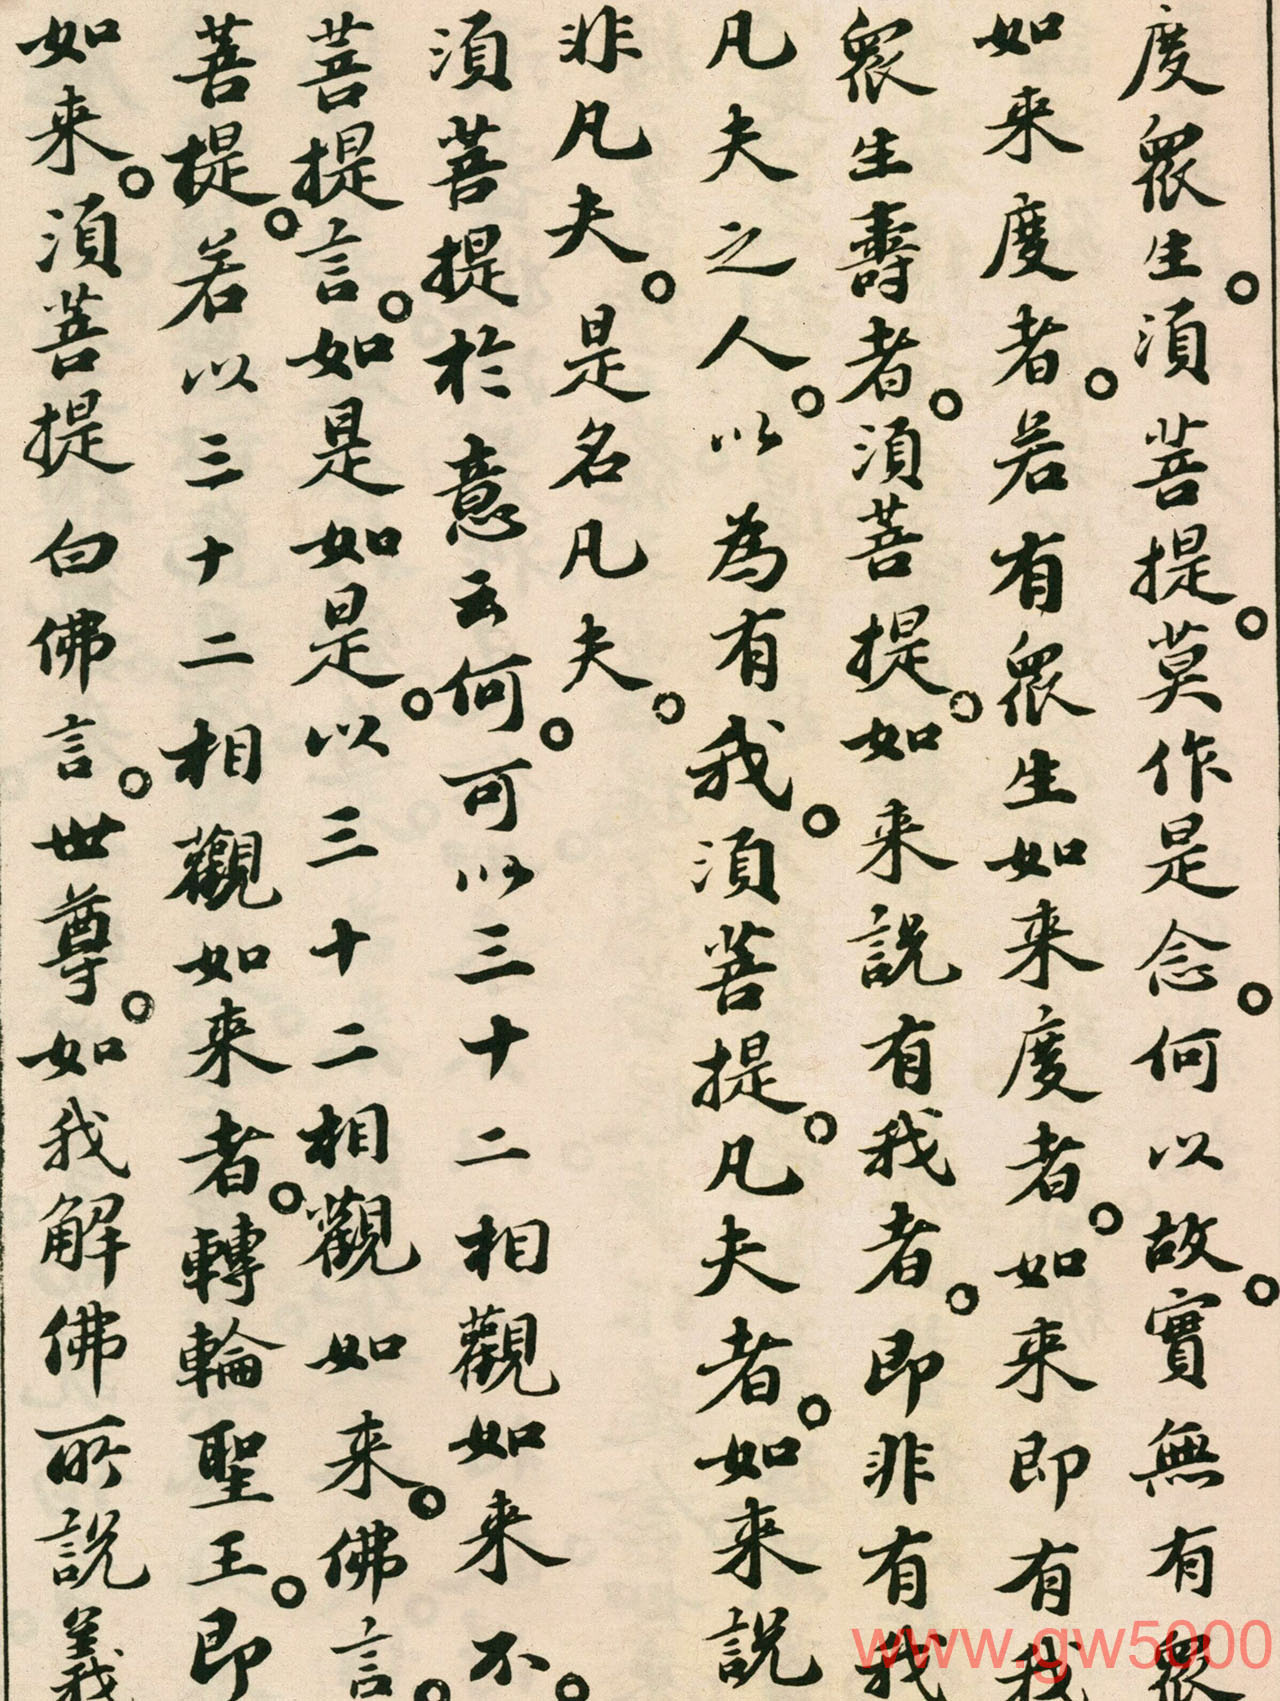 度眾生。須菩提。莫作是念。何以故。實無有眾
如来度者。若有眾生如来度者。如来即有我
眾生壽者。須菩提。如来說有我者。即非有我
凡夫之人。以為有我。須菩提。凡夫者。如来說
非凡夫。是名凡夫。
須菩提於意云何。可以三十二相觀如来不。
菩提言。如是如是。以三十二相觀如来。佛言。
菩提。若以三十二相觀如来者。轉輪聖王。即
如来。須菩提白佛言。世尊。如我解佛所說義
www.gw5000